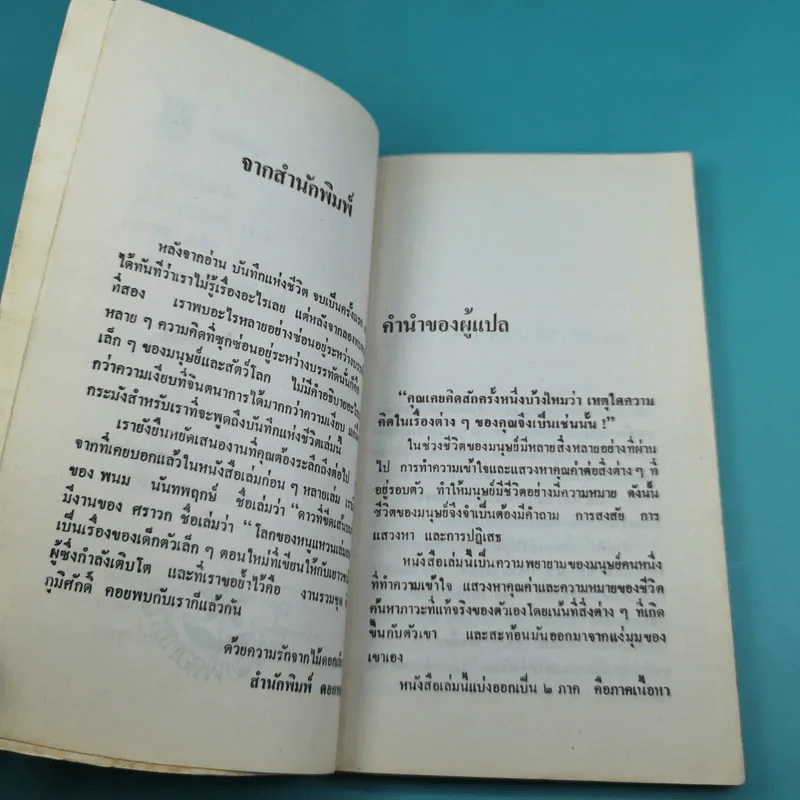 จากสำนักพิมพ์
หลังจากอ่าน บันทึกแห่งชีวิต จบเป็นครั้งแรก
ได้ทันทีว่าเราไม่รู้เรื่องอะไรเลย แต่หลังจากลอง
ที่สอง เราพบอะไรหลายอย่างซ่อนอยู่ระหว่าง
หลาย ๆ ความคิดที่ซุกซ่อนอยู่ระหว่างบรรทัดนั้น
เล็ก ๆ ของมนุษย์และสัตว์โลก ไม่มีคำอธิบาย
กว่าความเงียบที่จินตนาการได้มากกว่าความเงียบ
กระมังสำหรับเราที่จะพูดถึงบันทึกแห่งชีวิตเล่มนี้
เรายังยืนหยัดเสนองานที่คุณต้องระลึกถึงต่อไป
จากที่เคยบอกแล้วในหนังสือเล่มก่อน ๆ หลายเล่ม
ของ พนม นันทพฤกษ์ ชื่อเล่มว่า “ดาวที่ขีดเส้น
มีงานของ ศราวก ชื่อเล่มว่า “โลกของหนูแหวน
เป็นเรื่องของเด็กตัวเล็ก ๆ ตอนใหม่ที่เขียนให้กับ
ผู้ซึ่งกำลังเติบโต และที่เราขอย้ำไว้คือ งานรวมชุด
ภูมิศักดิ์ คอยพบกับเราก็แล้วกัน
ด้วยความรักจากไม้ดอก
สำนักพิมพ์
คำนำของผู้แปล
“คุณเคยคิดสักครั้งหนึ่งบ้างไหมว่า เหตุใดความ
คิดในเรื่องต่าง ๆ ของคุณจึงเป็นเช่นนั้น !”
ในช่วงชีวิตของมนุษย์มีหลายสิ่งหลายอย่างที่ผ่าน
ไป การทำความเข้าใจและแสวงหาคุณค่าต่อสิ่งต่าง ๆ ที่
อยู่รอบตัว ทำให้มนุษย์มีชีวิตอย่างมีความหมาย ดังนั้น
ชีวิตของมนุษย์จึงจำเป็นต้องมีคำถาม การสงสัย การ
แสวงหา และการปฏิเสธ
หนังสือเล่มนี้เป็นความพยายามของมนุษย์คนหนึ่ง
ที่ทำความเข้าใจ แสวงหาคุณค่าและความหมายของชีวิต
ค้นหาภาวะที่แท้จริงของตัวเองโดยเน้นที่สิ่งต่าง ๆ ที่เกิด
ขึ้นกับตัวเขา และสะท้อนมันออกมาจากแง่มุมของ
เขาเอง
หนังสือเล่มนี้แบ่งออกเป็น ๒ ภาค คือภาคเนื้อหา